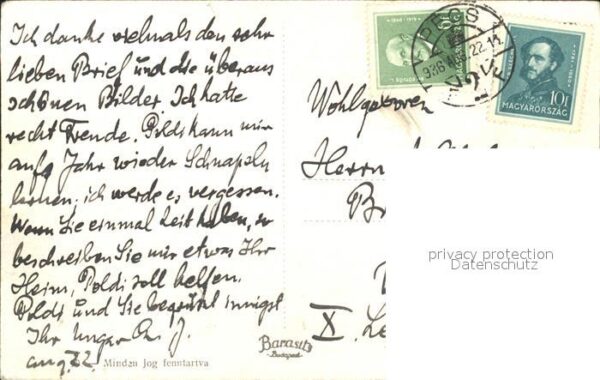 Ich danke vielmals den sehr
lieben Brief und die überaus
schönen Bilder. Ich hatte
recht Freude. Poldi kann mir
aufs Jahr wieder Schnapseln
lernen, ich werde es vergessen.
Wenn Sie einmal Zeit haben, so
beschreiben Sie mir etwas Ihr
Heim, Poldi soll helfen.
Poldi und Sie begrüßt innigst
Ihr Ungar
aug. 22.
Minden jog fenntartva
Barasits
Budapest
PÉCS
936
22.14
2
10f
MAGYARORSZÁG
Wohlgeboren
Herrn
X.
privacy protection
Datenschutz